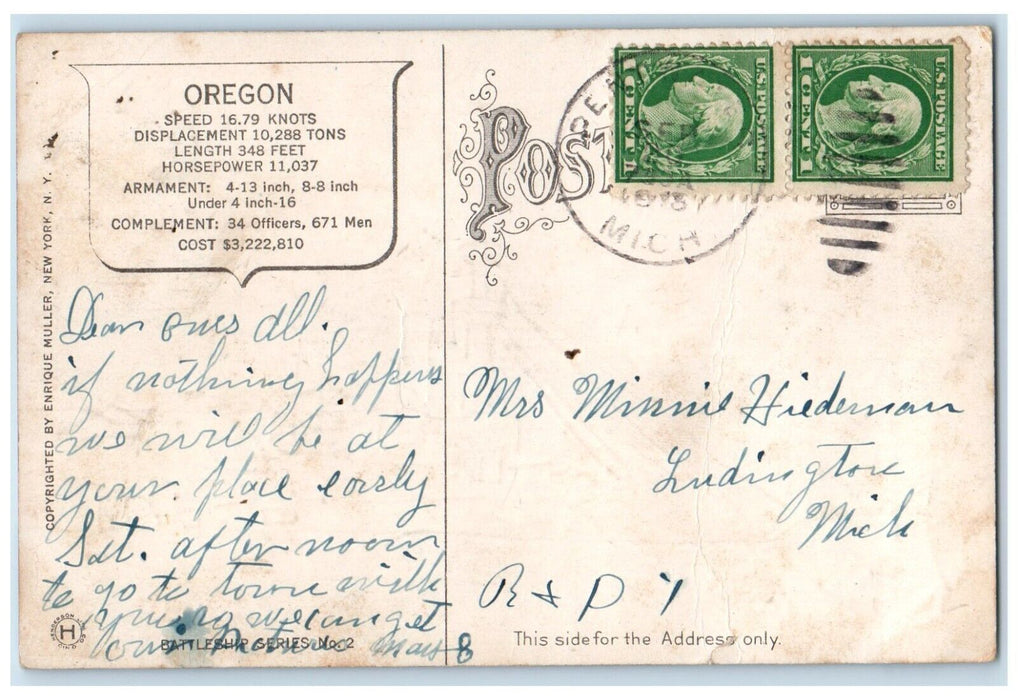 OREGON
SPEED 16.79 KNOTS
DISPLACEMENT 10,288 TONS
LENGTH 348 FEET
HORSEPOWER 11,037
ARMAMENT: 4-13 inch, 8-8 inch
Under 4 inch-16
COMPLEMENT: 34 Officers, 671 Men
COST $3,222,810
COPYRIGHTED BY ENRIQUE MULLER, NEW YORK, N. Y.
Dear ones all.
if nothing happens
we will be at
your place early
Sat. after noon
to go to town with
you so we can get
our
BATTLESHIP SERIES No. 2
H
POST
MICH
U.S. POSTAGE
1 CENT 1
U.S. POSTAGE
1 CENT 1
Mrs Minnie Hiedeman
Ludington
Mich
R & D 1
This side for the Address only.